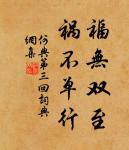 福無双至
祸不单行
何典第三回詞典
網集